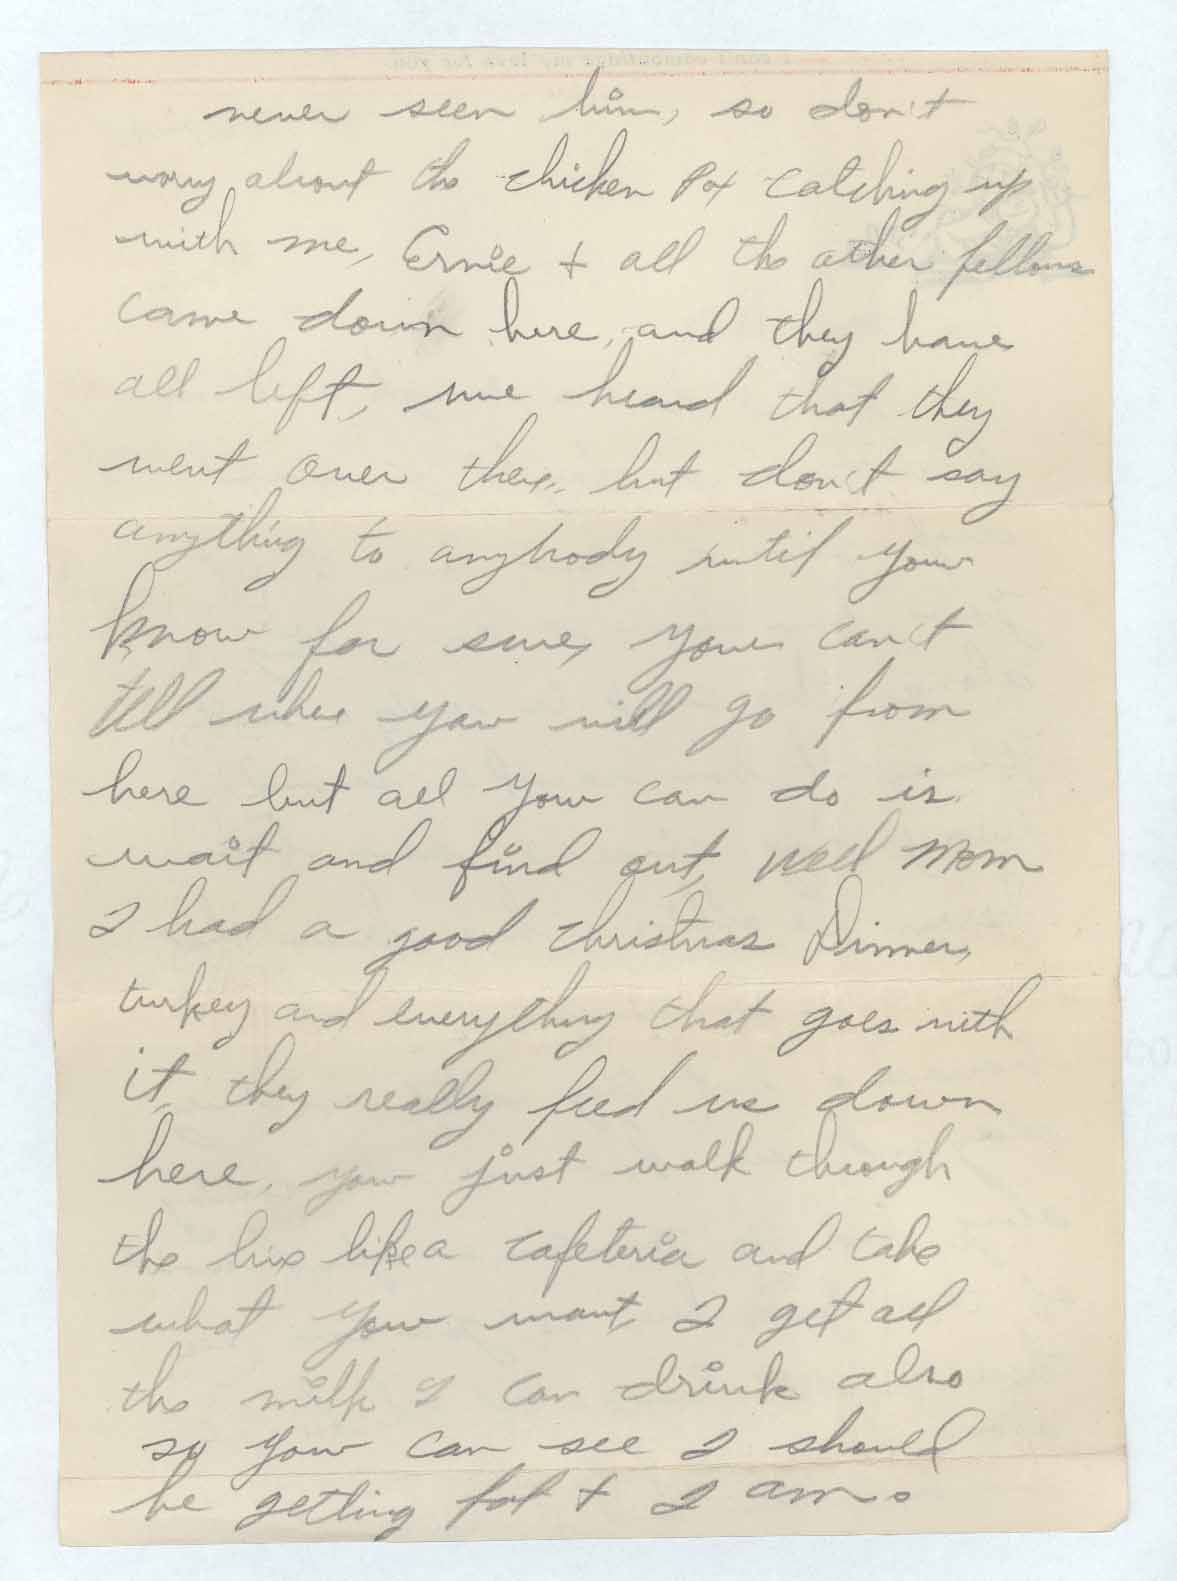 never seen him, so don't
worry about the chicken Pox catching up
with me, Ernie + all the other fellows
came down here, and they have
all left, we heard that they
went over there, but don't say
anything to anybody until you
know for sure, you can't
tell where you will go from
here but all you can do is
wait and find out, well Mom
I had a good christmas Dinner,
turkey and everything that goes with
it, they really feed us down
here, you just walk through
the line like a cafeteria and take
what you want, I get all
the milk I can drink also
so you can see I should
be getting fat + I am.